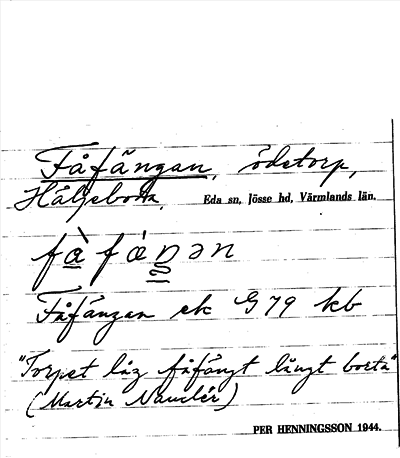 Fåfängan, ödetorp,
Håljeboda, Eda sn, Jösse hd, Värmlands län.
fàfáŋən
Fåfängan ek G 79 kb
"Torpet låg fåfängt långt borta"
(Martin Nauclér)
PER HENNINGSSON 1944.